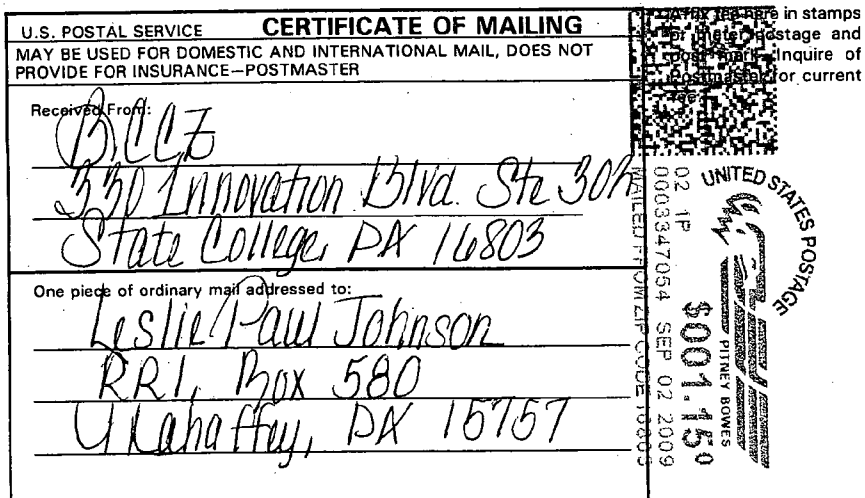 U.S. POSTAL SERVICE CERTIFICATE OF MAILING
MAY BE USED FOR DOMESTIC AND INTERNATIONAL MAIL, DOES NOT
PROVIDE FOR INSURANCE—POSTMASTER
Received From:
BCCZ
330 Innovation Blvd. Ste 302
State College, PA 16803
One piece of ordinary mail addressed to:
Leslie Paul Johnson
RR1, Box 580
Mahaffey, PA 15757
Affix fee here in stamps
or meter postage and
post mark. Inquire of
Postmaster for current
fee.
UNITED STATES POSTAGE
PITNEY BOWES
02 1P $001.15⁰
0003347054 SEP 02 2009
MAILED FROM ZIP CODE 16803